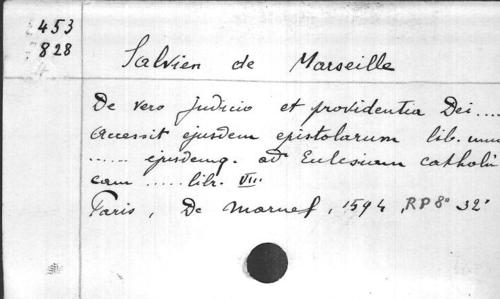 453
828
Salvien de Marseille
De vero judicio et providentia Dei ....
accessit ejusdem epistolarum lib. unus
...... ejusdemq. ad Eclesiam catholi
cam ..... libr. VIII.
Paris, De Marnef, 1594, RP 8° 32'